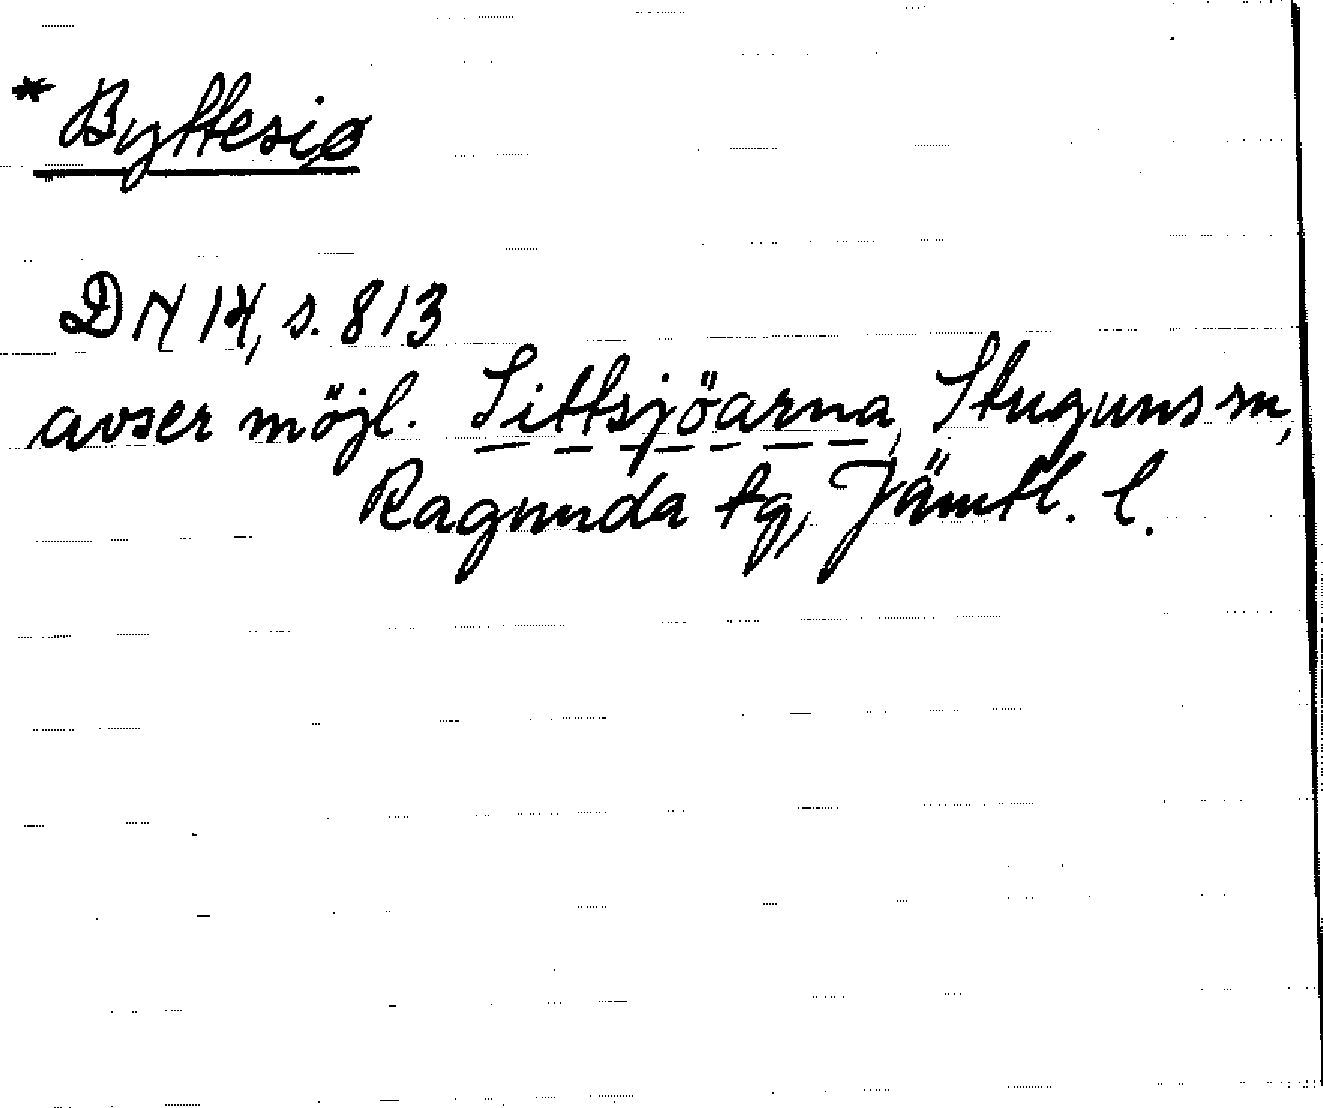 * Byttesiø
DN 14, s. 813
avser möjl. Sittsjöarna, Stuguns sn,
Ragunda tg, Jämtl. l.